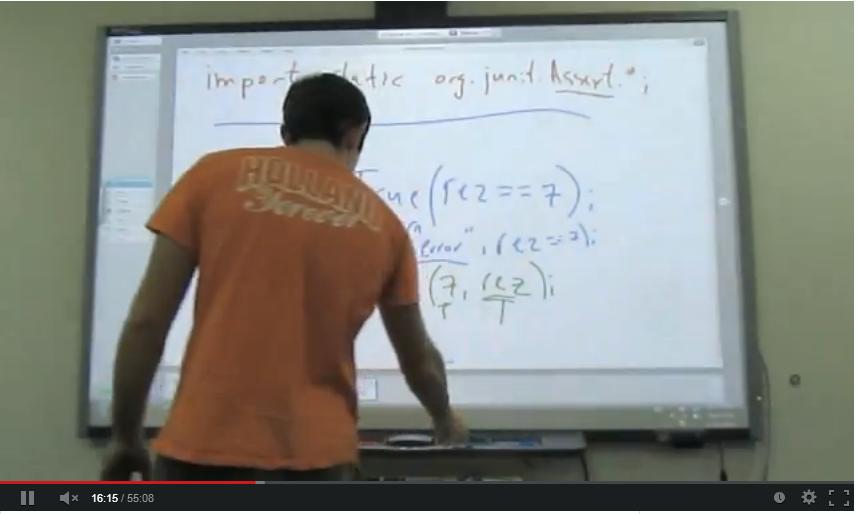 import static org.junit.Assert.*;
True(rez==7);
error", rez==7);
(7, rez);
T T
HOLLAND
Forever
16:15 / 55:08